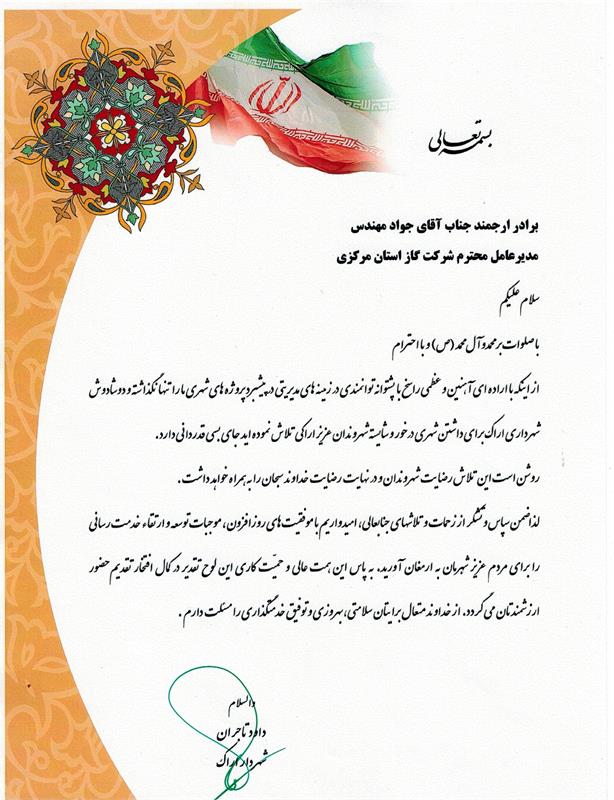 بسمه تعالی
برادر ارجمند جناب آقای جواد مهندس
مدیرعامل محترم شرکت گاز استان مرکزی
سلام علیکم
با صلوات بر محمد و آل محمد (ص) و با احترام
از اینکه با اراده ای آهنین و عظمی راسخ با پشتوانه توانمندی در زمینه های مدیریتی در پیشبرد پروژه های شهری ما را تنها نگذاشته و دوشادوش
شهرداری اراک برای داشتن شهری درخور و شایسته شهروندان عزیز اراکی تلاش نموده اید جای بسی قدردانی دارد.
روشن است این تلاش رضایت شهروندان و در نهایت رضایت خداوند سبحان را به همراه خواهد داشت.
لذا ضمن سپاس و تشکر از زحمات و تلاشهای جنابعالی، امیدواریم با موفقیت های روز افزون، موجبات توسعه و ارتقاء خدمت رسانی
را برای مردم عزیز شهرمان به ارمغان آورید. به پاس این همت عالی و حمیّت کاری این لوح تقدیر در کمال افتخار تقدیم حضور
ارزشمندتان می گردد. از خداوند متعال برایتان سلامتی، بهروزی و توفیق خدمتگذاری را مسئلت دارم.
والسلام
داود تاجران
شهردار اراک